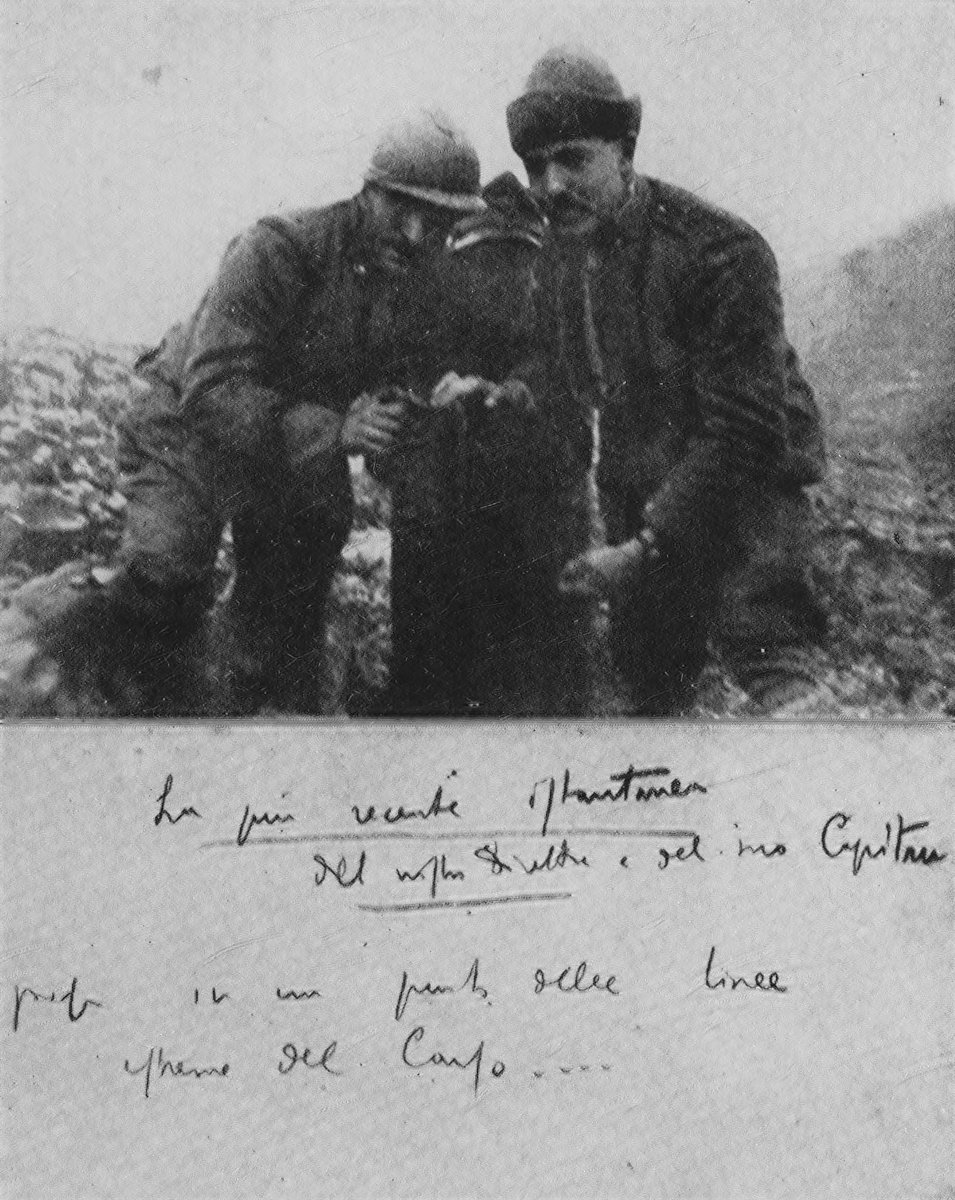 La più recente istantanea
del nostro Direttore e del suo Capitano
presa in un punto delle linee
estreme del Carso....